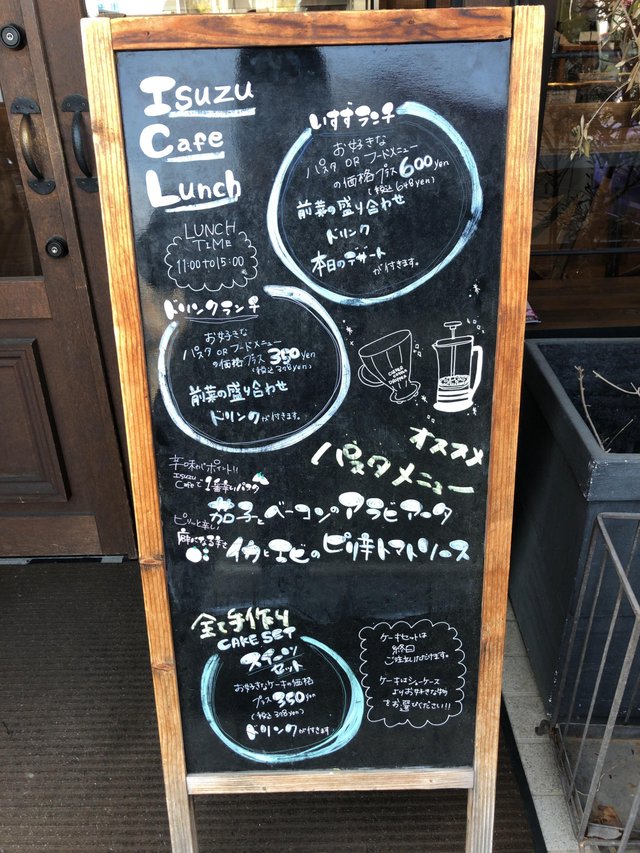 Isuzu
Cafe
Lunch
LUNCH
TIME
11:00 to 15:00
いすずランチ
お好きな
パスタ OR フードメニュー
の価格プラス 600yen
(税込648yen)
前菜の盛り合わせ
ドリンク
本日のデザート
が付きます。
ドリンクランチ
お好きな
パスタ OR フードメニュー
の価格プラス 350yen
(税込378yen)
前菜の盛り合わせ
ドリンクが付きます。
オススメ
パスタメニュー
辛味がポイント!!
Isuzu
Cafeで1番辛いパスタ
茄子とベーコンのアラビアータ
ピリッと辛い
癖になる辛さ
イカとエビのピリ辛トマトソース
全て手作り
CAKE SET
スイーツ
セット
お好きなケーキの価格
プラス350yen
(税込378yen)
ドリンクが付きます
ケーキセットは
終日
ご注文いただけます。
ケーキはショーケース
よりお好きな物
をお選びください!!